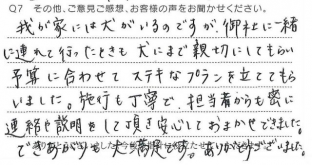 Q7 その他、ご意見ご感想、お客様の声をお聞かせください。
我が家には犬がいるのですが、御社に一緒
に連れて行ったときも犬にまで親切にしてもらい
予算に合わせてステキなプランを立ててもら
いました。施行も丁寧で、担当者からも密に
連絡や説明をして頂き安心しておまかせできました。
できあがりも大満足です。ありがとうございました。